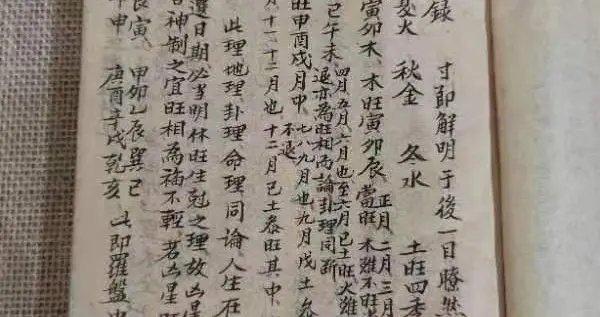 录 寸即解明于後一目瞭然
夏火 秋金 冬水 土旺四季
寅卯木 木旺寅卯辰當旺 正月二月三月 木雖不旺
巳午未 四月五月六月也至六月巳土旺火雖
退亦為旺相而論卦理同斷
旺甲酉戌月中 七八九月也九月戌土叅
不退
月十一十二月也十二月巳土叅旺其中
此理地理卦理命理同論人生在
選日期必当明林旺生尅之理故凶星
神制之宜旺相為福不輕若凶星旺
良寅 甲卯乙辰巽巳
申 庚酉辛戌乾亥 此即羅盤